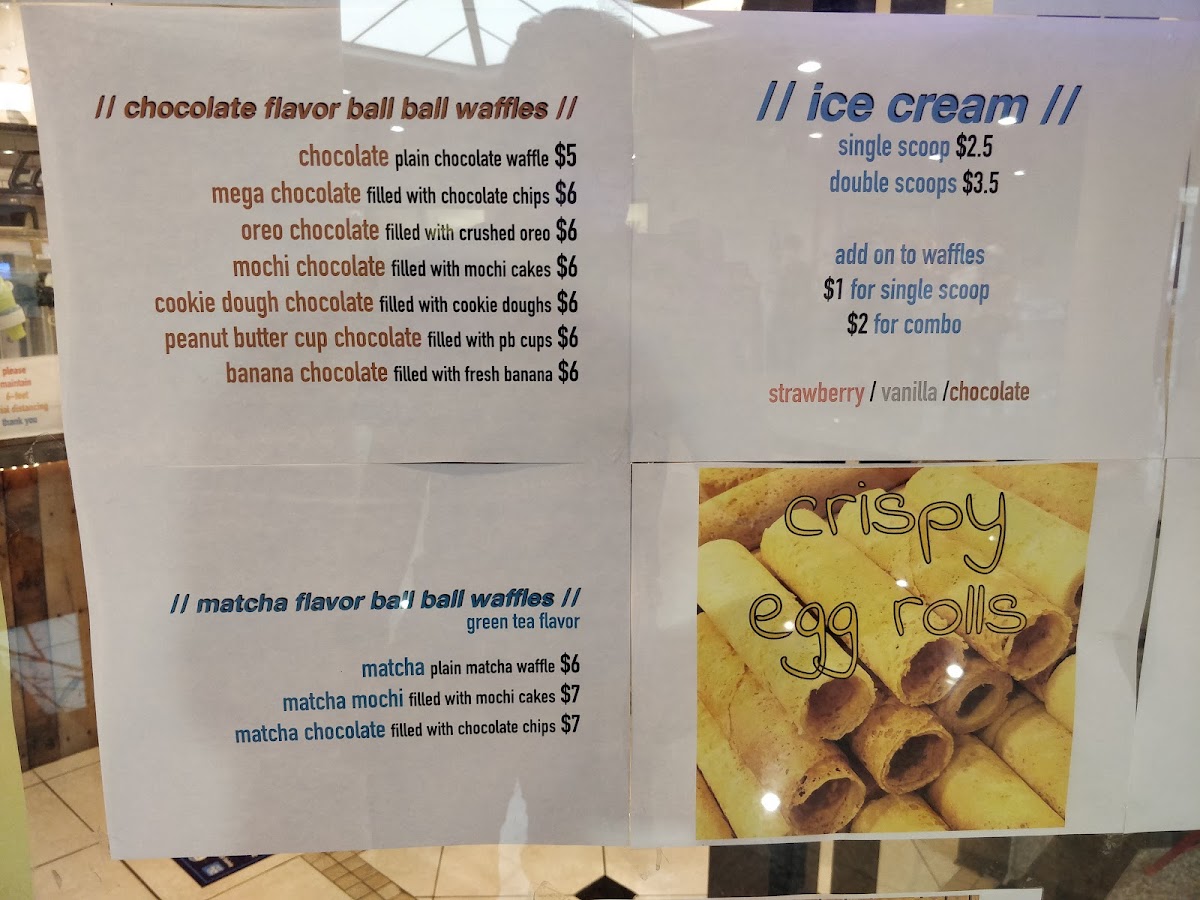 // chocolate flavor ball ball waffles //
chocolate plain chocolate waffle $5
mega chocolate filled with chocolate chips $6
oreo chocolate filled with crushed oreo $6
mochi chocolate filled with mochi cakes $6
cookie dough chocolate filled with cookie doughs $6
peanut butter cup chocolate filled with pb cups $6
banana chocolate filled with fresh banana $6
// matcha flavor ball ball waffles //
green tea flavor
matcha plain matcha waffle $6
matcha mochi filled with mochi cakes $7
matcha chocolate filled with chocolate chips $7
// ice cream //
single scoop $2.5
double scoops $3.5
add on to waffles
$1 for single scoop
$2 for combo
strawberry / vanilla /chocolate
crispy
egg rolls
please
maintain
6-feet
distancing
thank you